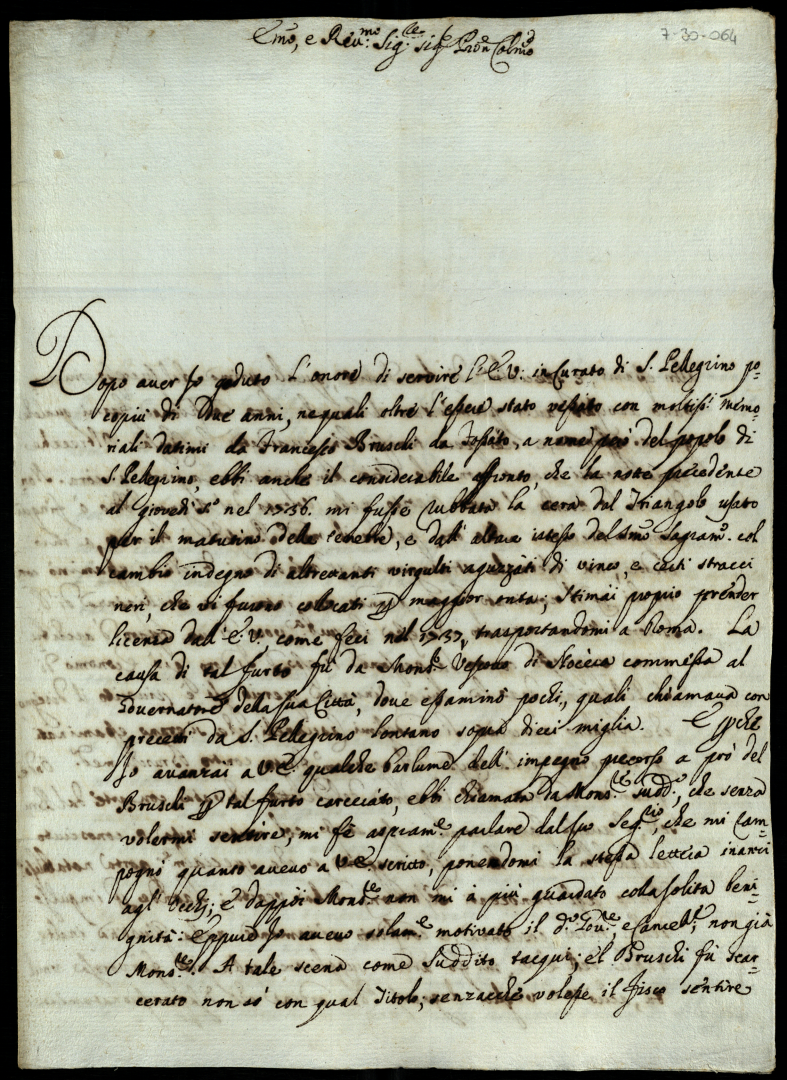 7-30-064
Emo, e Revmo: Sig:re Sig:e Pron Colmo
Dopo aver Io goduto l'onore di servire l'E.V. in Curato di S. Pellegrino po=
copiù di Due anni, nequali oltre l'essere stato vessato con moltiss:i memo
riali datimi da Francesco Bruschi da Fossato, a nome però del popolo di
S. Pelegrino, ebbi anche il considerabile affronto, che la notte precedente
al giovedì S:o nel 1736. mi fusse rubbata la cera dal Triangolo usato
per il matutino delle tenebre, e dall'altare istesso del Smo Sagram:o col
cambio indegno di altrettanti virgulti aguzzati di vinco, e certi stracci
neri, che vi furono colocati p maggior onta; Stimai proprio prender
licenza dall'E.V. come feci nel 1737, trasportandomi a Roma. La
causa di tal furto fù da Mons:e Vescovo di Nocera commessa al
Governatore della sua Città, dove essaminò pochi, quali chiamava con
precetti da S. Pellegrino lontano sopra dieci miglia. E pche
Io avanzai a V.E. qualche barlume dell'impegno precorso a prò del
Bruschi p tal furto carcerato, ebbi chiamata da Mons:re Sudd:o, che senza
volermi sentire, mi fè aspram:e parlare dal suo Seg:rio, che mi ram=
pognò quanto avevo a V.E. scritto, ponendomi la stessa lettera inanzi
agl'occhj; E dappoi Mons:re non mi à più guardato colla solita beni=
gnità: Eppure Io avevo solam:e motivato il d:o Gov:re e Cancell:e, non già
Mons:re. A tale scena come suddito tacqui; e'l Bruschi fù scar=
cerato non só con qual Titolo; senzacche volesse il Fisco sentire